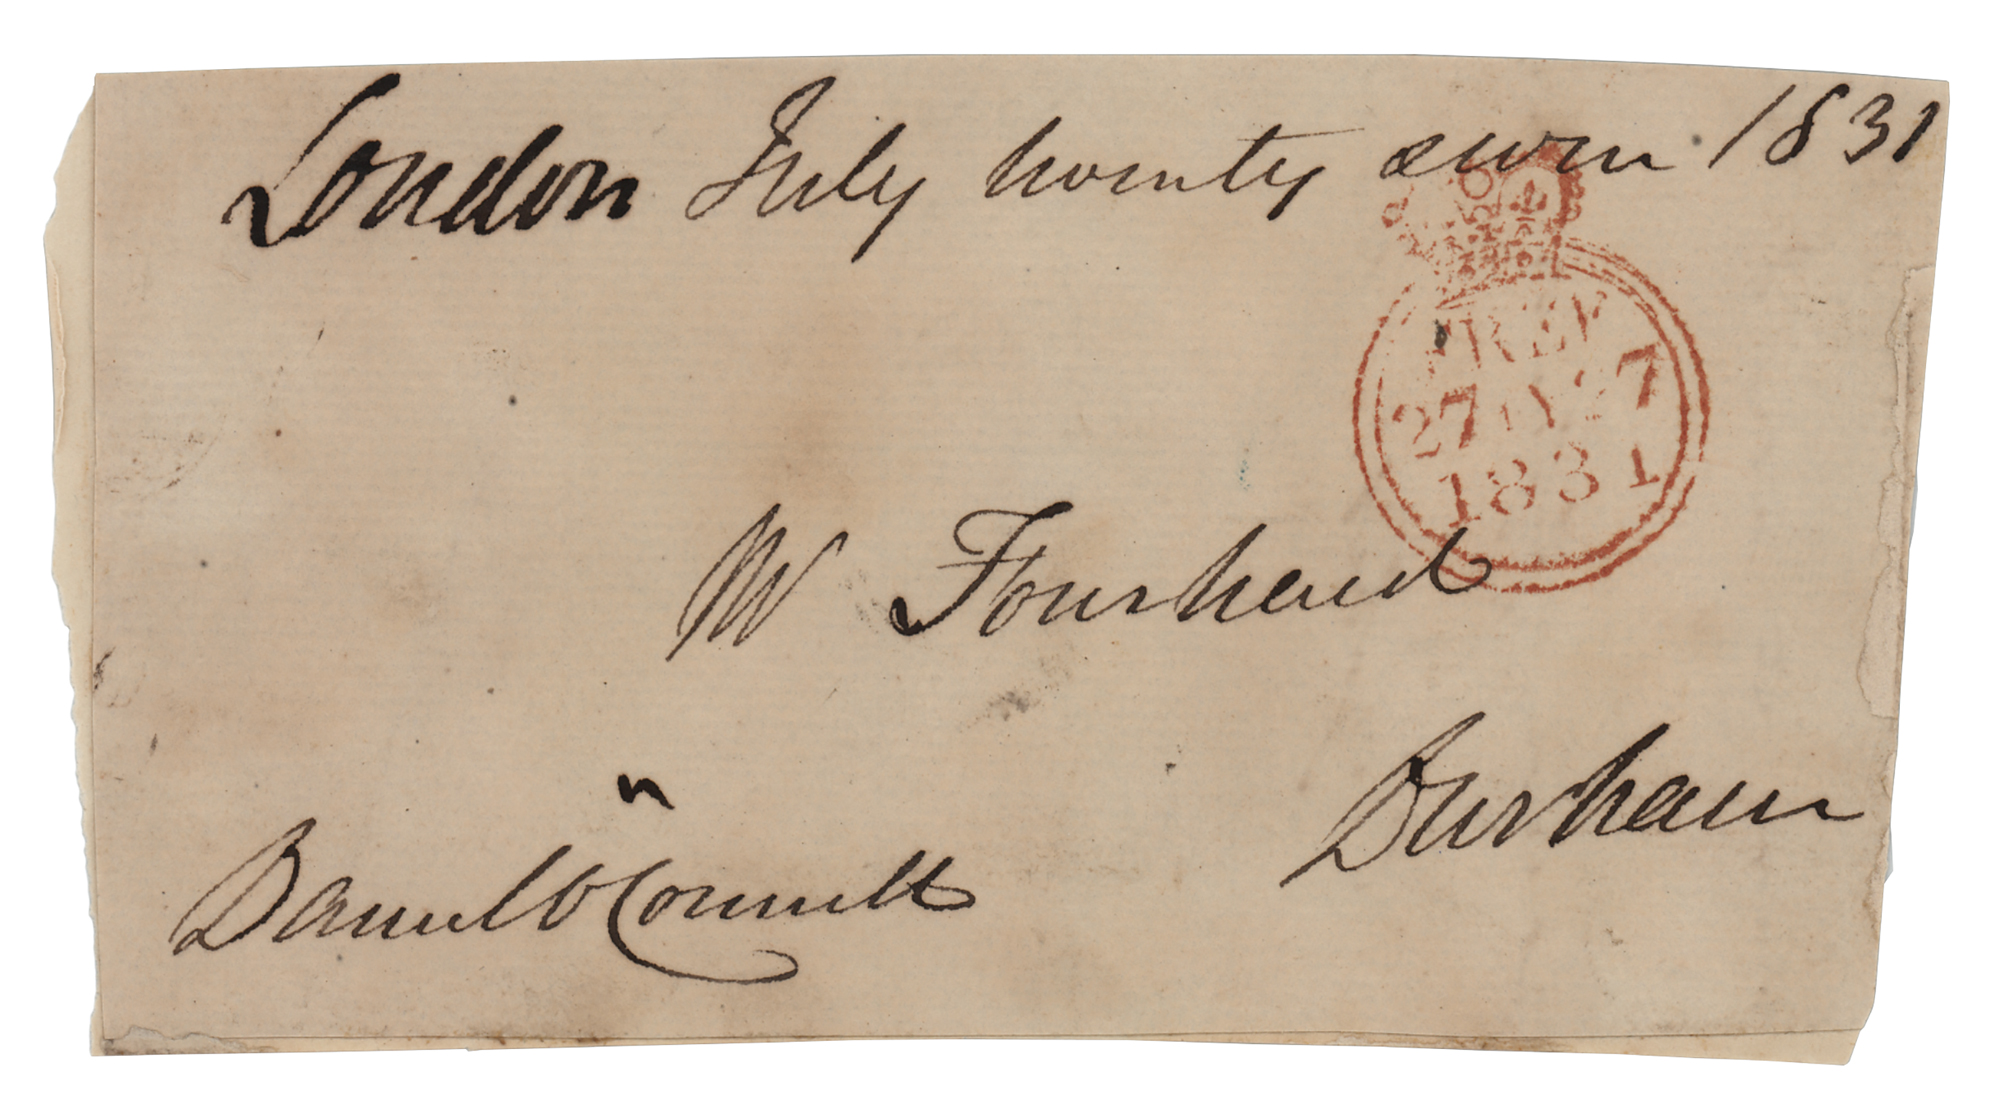 London July twenty seven 1831
FREE
27 JY 27
1831
Mr Fourhead
Durham
Daniel O'Connell